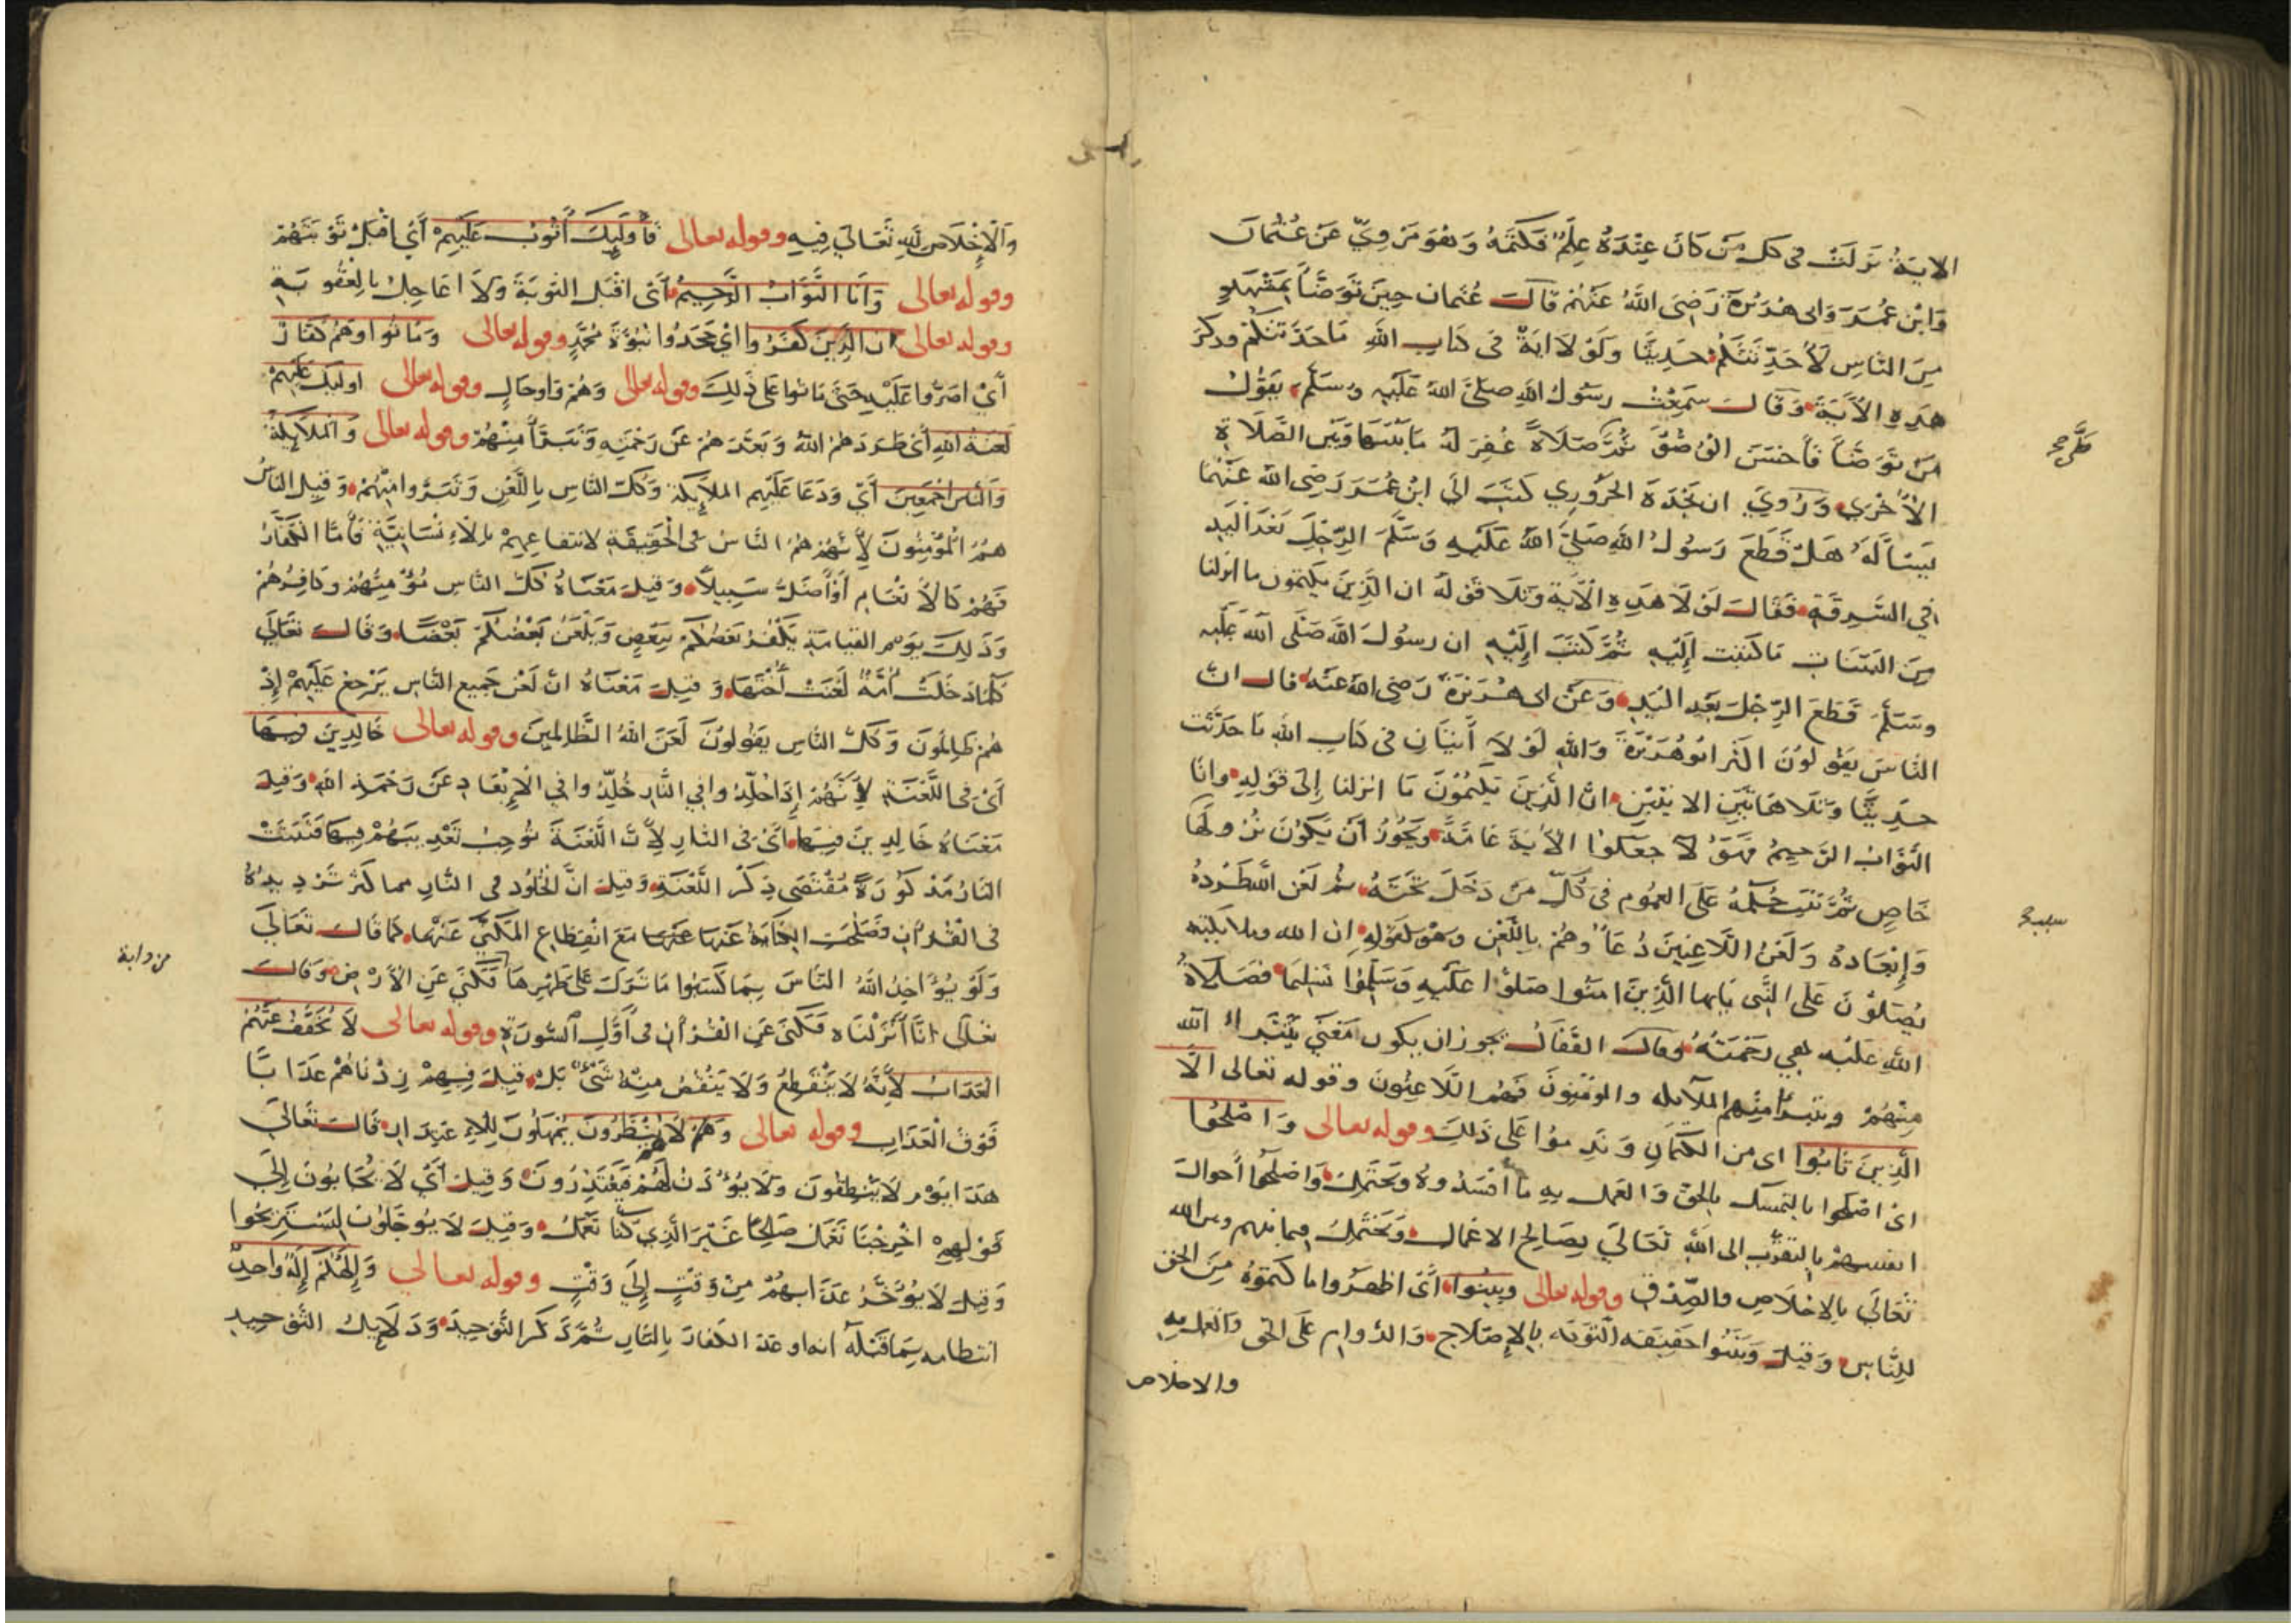 الاية نزلت في كل من كان عنده علم فكتمه وهو مروي عن عثمان
وابن عمر وابي هريرة رضي الله عنهم قال عثمان حين توضأ بمشهد
من الناس لأحدثنكم حديثا ولولا اية في كتاب الله ما حدثتكم وذكر
هذه الآية وقال سمعت رسول الله صلى الله عليه وسلم يقول
من توضأ فأحسن الوضوء ثم صلاة غفر له ما بينها وبين الصلاة
الأخرى وروي ان نجدة الحروري كتب الى ابن عمر رضي الله عنهما
يسأله هل قطع رسول الله صلى الله عليه وسلم الرجل بعد اليد
في السرقة فقال لولا هذه الآية وتلا قوله ان الذين يكتمون ما انزلنا
من البينات ما كتبت إليه ثم كتب إليه ان رسول الله صلى الله عليه
وسلم قطع الرجل بعد اليد وعن ابي هريرة رضي الله عنه قال ان
الناس يقولون اكثر ابو هريرة والله لولا آيتان في كتاب الله ما حدثت
حديثا وتلا هاتين الايتين ان الذين يكتمون ما انزلنا إلى قوله وانا
التواب الرحيم فهؤلا جعلوا الآية عامة ويجوز أن يكون نزولها
خاص ثم تثبت حكمه على العموم في كل من دخل تحته ثم لعن الله طرده
وإبعاده ولعن اللاعنين دعاء وهم باللعن وهو لقوله ان الله وملايكته
يصلون على النبي يايها الذين امنوا صلوا عليه وسلموا تسليما فصلاة
الله عليه هي رحمته وقال القفال يجوز ان يكون معنى يتبرا الله
منهم ويتبرأ منهم الملآيكه والمومنون فهم اللاعنون وقوله تعالى الا
الذين تابوا اي من الكتمان وندموا على ذلك وقوله تعالى واصلحوا
اي اصلحوا بالتمسك بالحق والعمل به ما أفسدوه ويحتمل واصلحوا أحوال
انفسهم بالتقرب الى الله تعالى بصالح الاعمال ويحتمل فيما بينهم وبين الله
تعالى بالاخلاص والصدق وقوله تعالى وبينوا أي اظهروا ما كتموه من الحق
للناس وقيل وبينوا حقيقة التوبة بالإصلاح والدوام على الحق والعمل به
والاخلاص
والإخلاص لله تعالى فيه وقوله تعالى فأولئك أتوب عليهم أي اقبل توبتهم
وقوله تعالى وانا التواب الرحيم أي اقبل التوبة ولا اعاجل بالعقوبة
وقوله تعالى ان الذين كفروا اي جحدوا نبوة محمد وقوله تعالى وماتوا وهم كفار
أي اصروا عليه حتى ماتوا على ذلك وقوله تعالى وهم واو حال وقوله تعالى اوليك عليهم
لعنة الله أي طردهم الله وبعدهم عن رحمته وتبرأ منهم وقوله تعالى والملايكة
والناس اجمعين أي ودعا عليهم الملايكة وكل الناس باللعن وتبروا منهم وقيل الناس
هم المؤمنون لأنهم هم الناس في الحقيقة لانتفاعهم بالإنسانية فأما الكفار
فهم كالأنعام أو أضل سبيلا وقيل معناه كل الناس مؤمنهم وكافرهم
وذلك يوم القيامة يكفر بعضكم ببعض ويلعن بعضكم بعضا وقال تعالى
كلما دخلت أمة لعنت أختها وقيل معناه ان لعن جميع الناس يرجع عليهم إذ
هم ظالمون وكل الناس يقولون لعن الله الظالمين وقوله تعالى خالدين فيها
أي في اللعنة لأنهم إذا خلدوا في النار خلدوا في الإبعاد عن رحمة الله وقيل
معناه خالدين فيها أي في النار لأن اللعنة توجب تعذيبهم فيها فتثبت
النار مذكورة مقتضى ذكر اللعنة وقيل ان الخلود في النار مما كثر ترديده
في القرآن فصلحت الكناية عنها عنها مع انقطاع المكني عنها كما قال تعالى
من دابة
ولو يؤاخذ الله الناس بما كسبوا ما ترك على ظهرها فكني عن الأرض وقال
تعالى انا أنزلناه فكنى عن القرآن في أول السورة وقوله تعالى لا يخفف عنهم
العذاب لأنه لا ينقطع ولا ينقص منه شيء بل قيل فيهم زدناهم عذابا
فوق العذاب وقوله تعالى ولا هم ينظرون يمهلون للاعتذار قال تعالى
هذا يوم لا ينطقون ولا يؤذن لهم فيعتذرون وقيل أي لا يجابون إلى
قولهم اخرجنا نعمل صالحا غير الذي كنا نعمل وقيل لا يوجلون ليستريحوا
وقيل لا يؤخر عذابهم من وقت إلى وقت وقوله تعالى وإلهكم إله واحد
انتظامه بما قبله انه اوعد الكفار بالنار ثم ذكر التوحيد ودلايل التوحيد